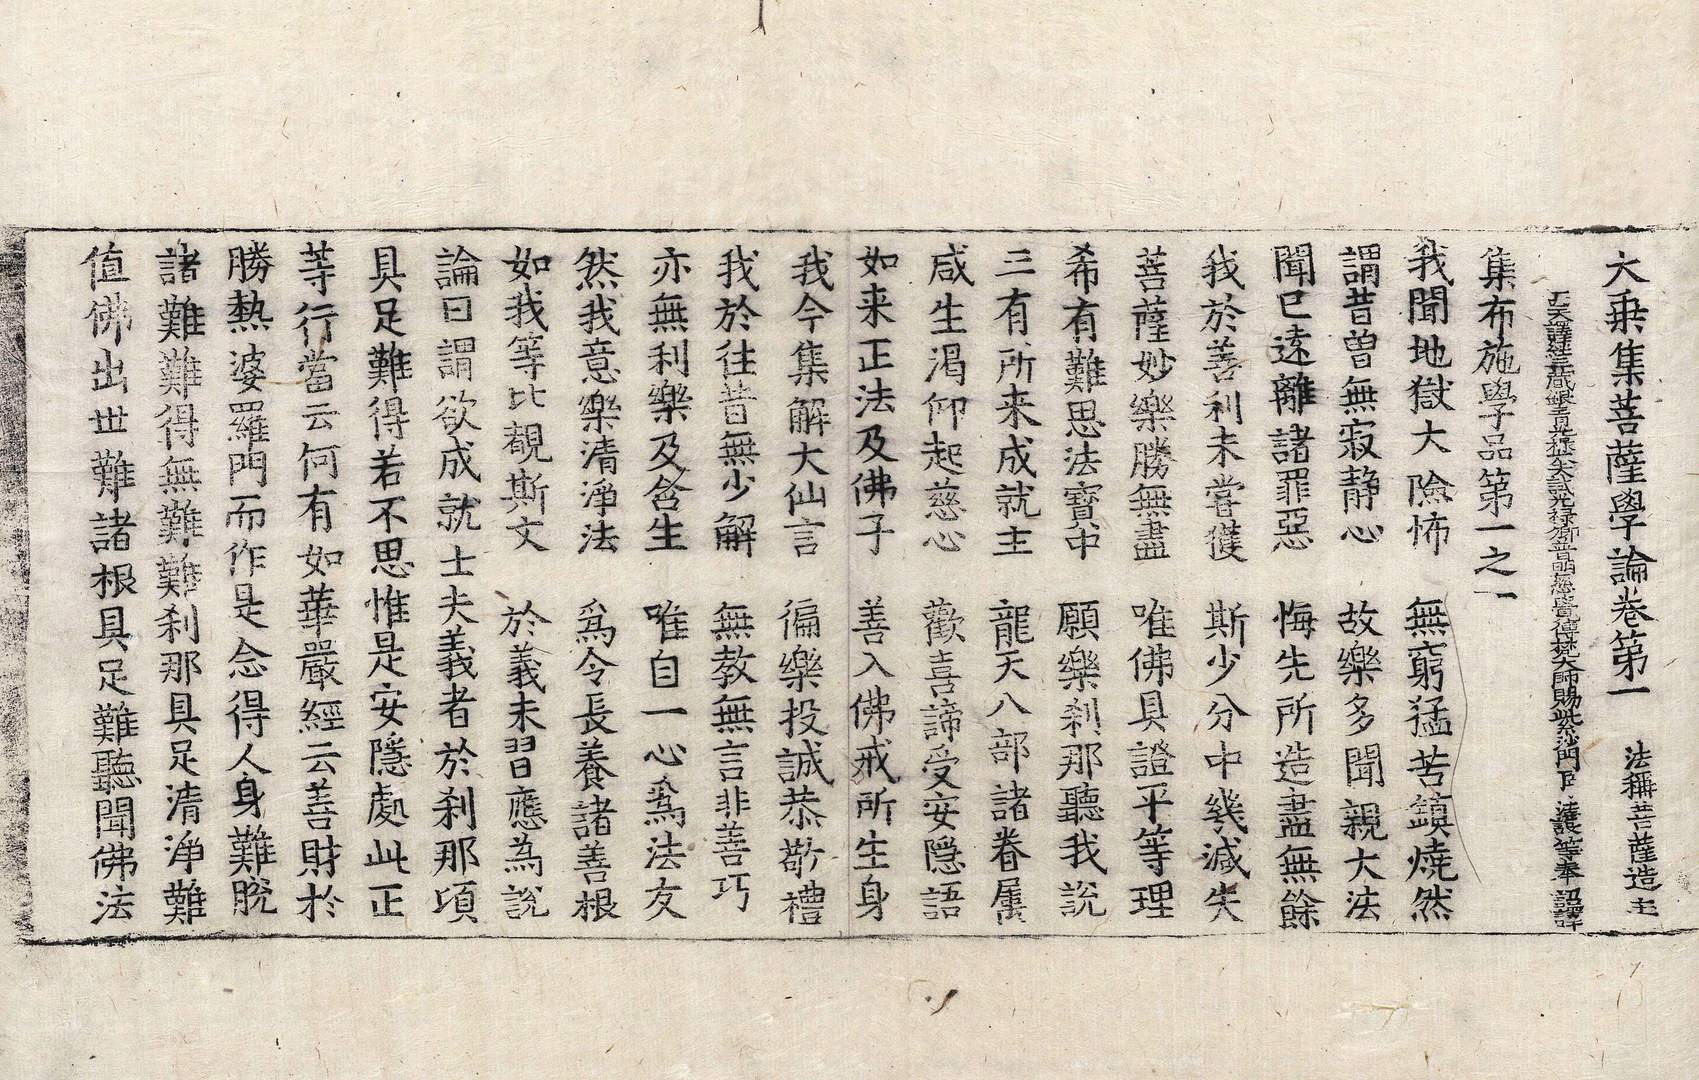 大乗集菩薩學論卷第一 法稱菩薩造 主
西天譯經三藏銀青光祿大夫試光祿卿普明慈覺傳梵大師賜紫沙門臣法護等奉 詔譯
集布施學品第一之一
我聞地獄大險怖 無窮猛苦鎮燒然
謂昔曾無寂静心 故樂多聞親大法
聞已遠離諸罪惡 悔先所造盡無餘
我於善利未甞獲 斯少分中幾減失
菩薩妙樂勝無盡 唯佛具證平等理
希有難思法寶中 願樂刹那聽我說
三有所来成就主 龍天八部諸眷属
咸生渴仰起慈心 歡喜諦受安隱語
如来正法及佛子 善入佛戒所生身
我今集解大仙言 徧樂投誠恭敬禮
我於往昔無少解 無教無言非善巧
亦無利樂及含生 唯自一心爲法友
然我意樂清淨法 爲令長養諸善根
如我等比覩斯文 於義未習應為說
論曰謂欲成就士夫義者於刹那頃
具足難得若不思惟是安隱處此正
等行當云何有如華嚴經云善財於
勝熱婆羅門而作是念得人身難脫
諸難難得無難難刹那具足清淨難
值佛出世難諸根具足難聽聞佛法